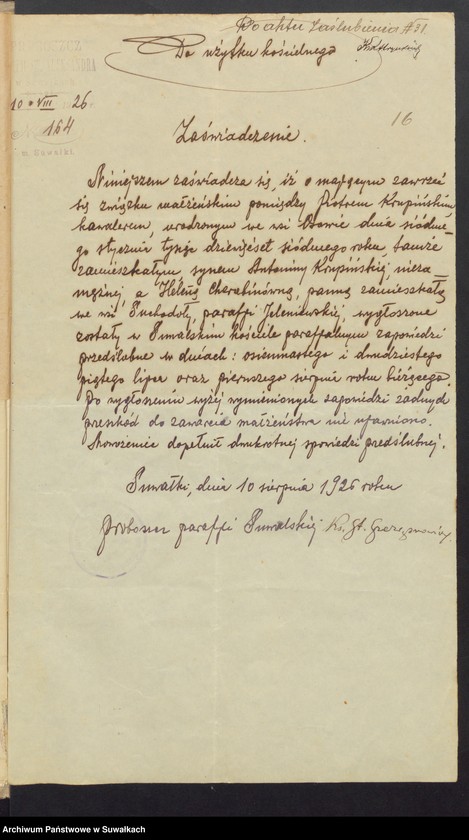 Do aktu zaślubienia # 31.
Do użytku kościelnego
10 VIII 26
164
16
m. Suwałki
Zaświadczenie.
Niniejszem zaświadcza się, iż o mającym zawrzeć
się związku małżeńskim pomiędzy Piotrem Krupińskim
kawalerem, urodzonym we wsi Osowie dnia siódme-
go stycznia tysiąc dziewięćset siódmego roku, tamże
zamieszkałym, synem Antoniny Krupińskiej, nieza
mężnej, a Heleną Cherubinówną, panną zamieszkałą
we wsi Suchodoły, paraffi Jeleniewskiej, wygłoszone
zostały w Suwalskim kościele paraffialnym zapowiedzi
przedślubne w dniach: osiemnastego i dwudziestego
piątego lipca oraz pierwszego sierpnia roku bieżącego.
Po wygłoszeniu wyżej wymienionych zapowiedzi żadnych
przeszkód do zawarcia małżeństwa nie ujawniono.
Narzeczeniec dopełnił dwukrotnej spowiedzi przedślubnej.
Suwałki, dnia 10 sierpnia 1926 roku
Proboszcz paraffi Suwalskiej Ks. St.
Archiwum Państwowe w Suwałkach